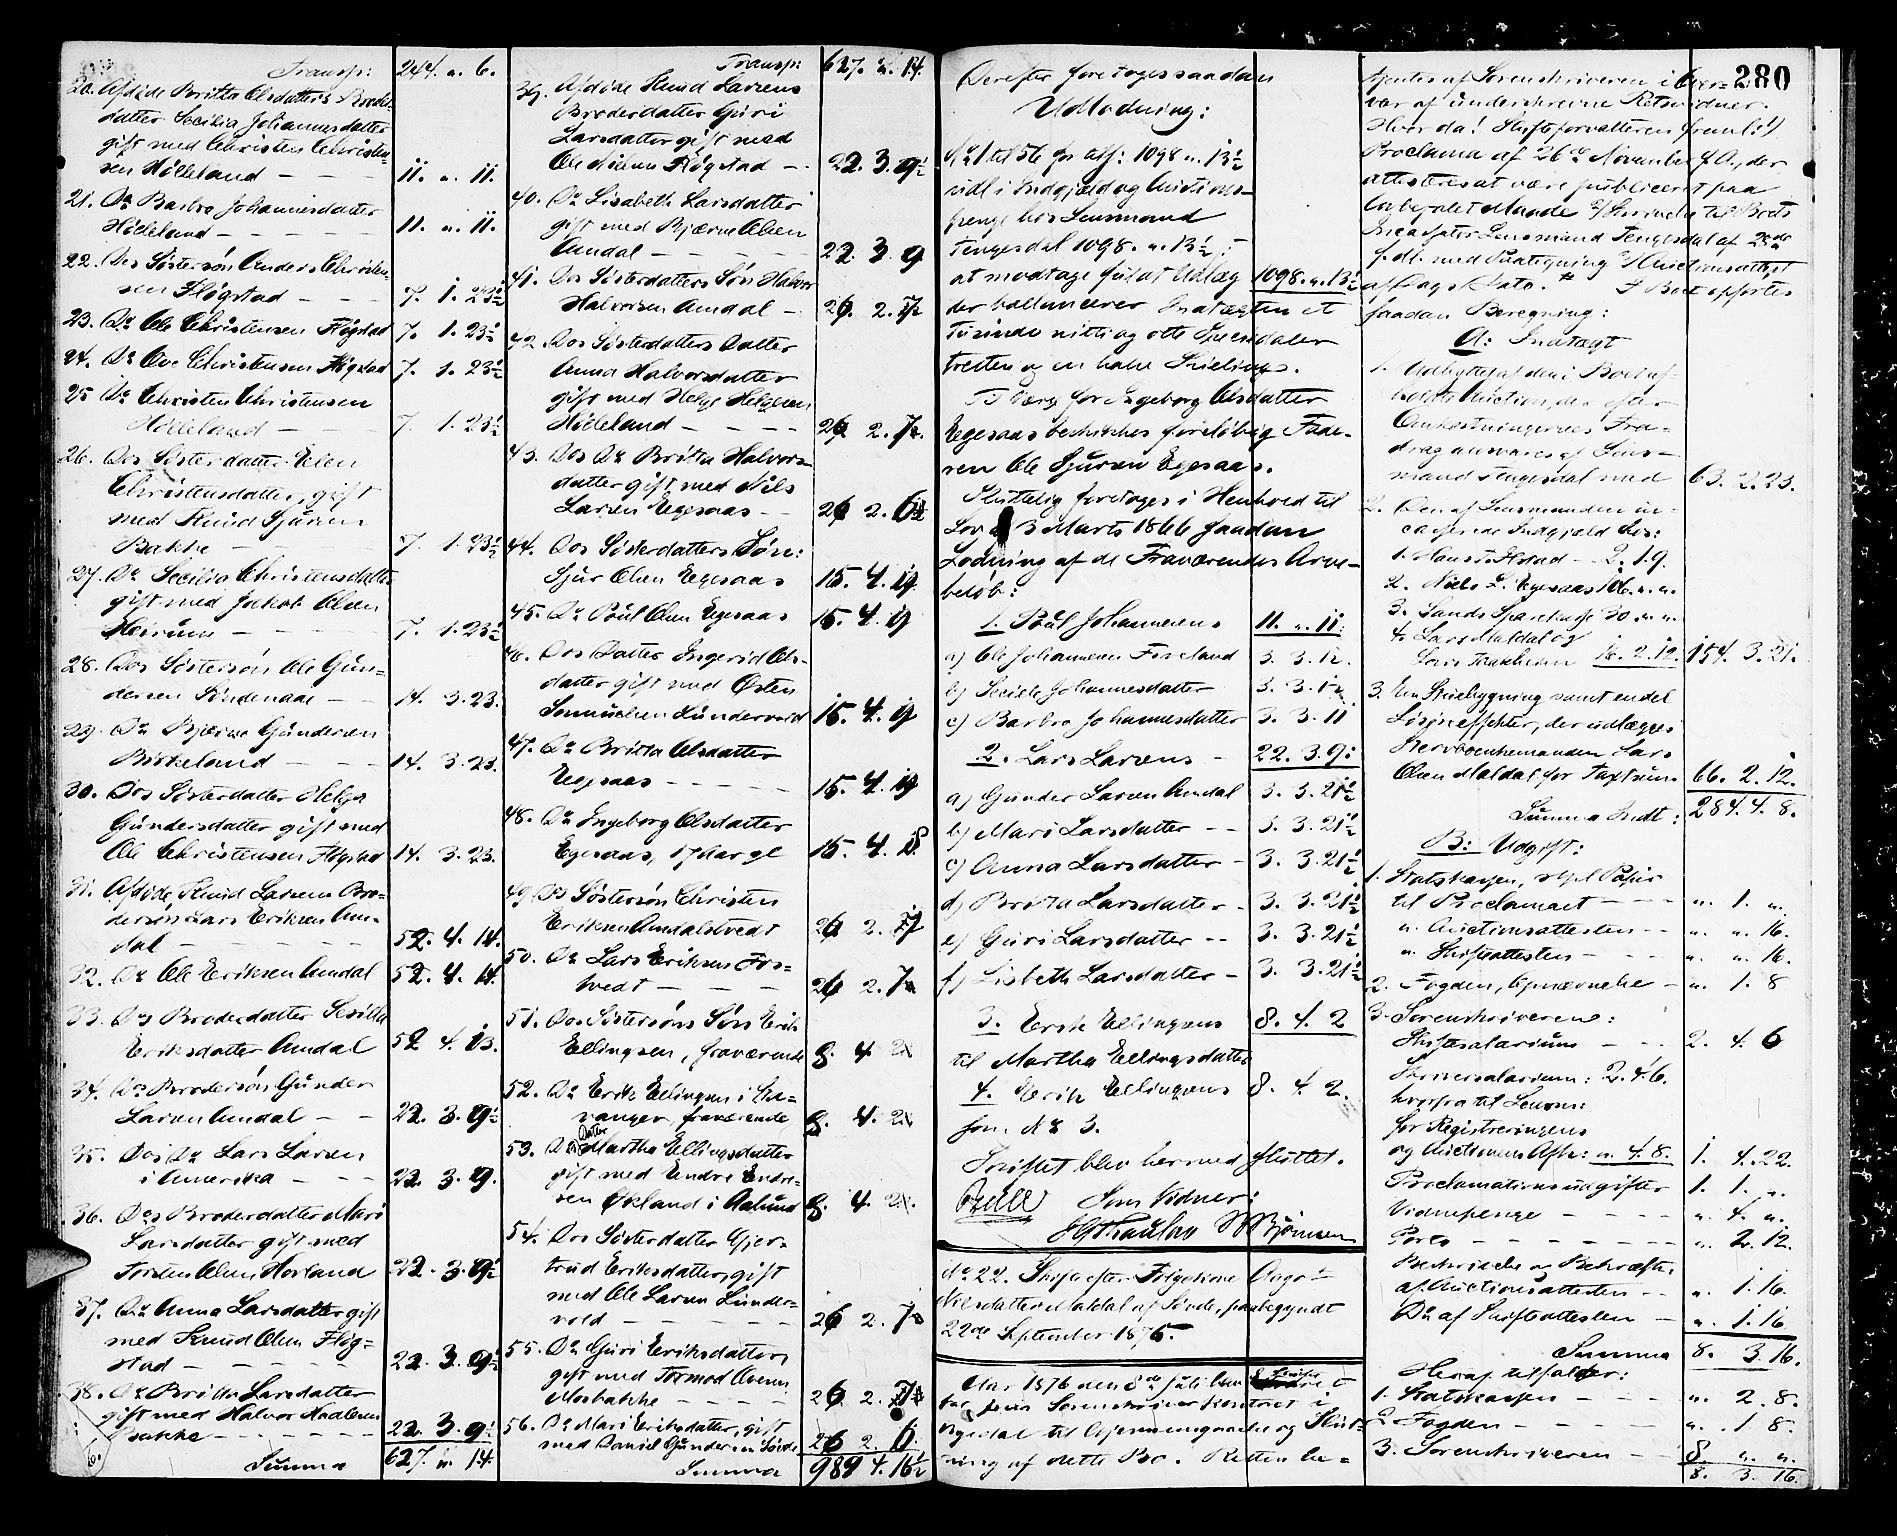 Transp: 244. „. 6.
20. Afdøde Britta Olsdatters Broder-
datter Secilia Johannesdatter
gift med Christen Christen-
sen Hölleland - - - 11. „. 11.
21. Do Barbro Johannesdatter
Hölleland - - - - 11. „. 11.
22. Dos Søstersön Anders Christen-
sen Flögstad - - - 7. 1. 23½
23. Do Ole Christensen Flögstad 7. 1. 23½
24. Do Ove Christensen Flögstad 7. 1. 23½
25 Do Christen Christensen
Hölleland - - 7. 1. 23½
26. Dos Søsterdatter Elen
Christensdatter, gift
med Knud Sjursen
Bakke - 7. 1. 23½
27. Do Secilia Christensdatter
gift med Jakob Olsen
- - - - 7. 1. 23½
28. Dos Søstersön Ole Gun-
dersen Söndenaae - - 14. 3. 23.
29. Do Bjærne Gundersen
Birkeland - - - 14. 3. 23.
30. Dos Søsterdatter Helga
Gundersdatter gift med
Ole Christensen Flögstad 14. 3. 23.
31. Afdøde Knud Larsens Bro-
dersön Lars Eriksen Am-
dal - - - - - 52. 4. 14.
32. Do Ole Eriksen Amdal 52. 4. 14.
33. Dos Broderdatter Sesilia
Eriksdatter Amdal 52 4. 13.
34. Dos Brodersön Gunder
Larsen Amdal - - 22. 3. 9½
35. Dos Do Lars Larsen
i Amerika - - - 22. 3. 9.
36. Dos Broderdatter Mari
Larsdatter gift med
Torsten Olsen Hovland 22. 3. 9½
37. Do Anna Larsdatter gift
med Knud Olsen Flög-
stad - - - - - 22. 3. 9½
38. Do Britta Larsdatter
gift med Halvor
bakke - - - - - - 22. 3. 9½
Summa 627. „. 14.
Transp: 627. „. 14.
39. Afdøde Knud Larsens
Broderdatter Guri
Larsdatter gift med
Ole Flögstad - - 22. 3. 9½
40. Do Lisabeth Larsdatter
gift med Bjærne Olsen
Amdal - - - - - 22. 3. 9
41. Dos Søsterdatters Sön Halvor
Halvorsen Amdal - 26. 2. 7
42. Dos Søsterdatters Datter
Anna Halvorsdatter
gift med Helge Helgesen
Hölleland - - - - 26. 2. 7.
43. Dos Do Britta Halvors-
datter gift med Nils
Larsen Egesaas - - 26 2. 6½
44. Dos Søsterdatters Søn:
Sjur Olsen Egesaas 15. 4. 19
45. Do Poül Olsen Egesaas 15. 4. 19
46. Dos Datter Ingerid Ols-
datter gift med Østen
Samuelsen Lundervold 15. 4. 19
47. Do Britta Olsdatter
Egesaas - - - - 15. 4. 19
48. Do Ingeborg Olsdatter
Egesaas, 17 Aar gl 15. 4. 18.
49. Ds Søstersön Christen
Eriksen Amdalstvedt 26 2. 7
50. Do Lars Eriksen Fos-
tvedt - - - - 26 2. 7
51. Dos Søstersöns Sön Erik
Ellingsen, fraværende 8. 4. 2
52. Do Erik Ellingsen i Sta-
vanger, fraværende 8. 4. 2
53. Do Datter Martha Ellingsdatter
gift med Endre Endre-
sen Økland i Aalund 8. 4. 2.
54. Dos Søsterdatter Gjer-
trud Eriksdatter, gift
med Ole Larsen Lunder-
vold - - - - - 26 2. 7
55. Do Guri Eriksdatter
gift med Tormod
Mosbakke - - - - 26 2. 7
56. Do Mari Eriksdatter, gift
med Daniel Gundersen Sövde 26 2. 6.
Summa 989 4. 16½
Derefter foretoges saadan
Udlodning:
No 1 til 56 for tilf: 1098 „ 13½
udl: i Indgjæld og Auctions-
penge hos Lensmand
Tengesdal 1098. „. 13½ ;-
at modtage føiat Udlæg 1098. „. 13½
der ballancerer Indtægten et
Tusinde nitti og otte Speciedaler
tretten og en halv Skilling.
Til Værge for Ingeborg Olsdatter
Egesaas beskikkes foreløbig Fade-
ren Ole Sjursen Egesaas.
Sluttelig foretoges i Henhold til
Lov 3 Marts 1866 saadan
Lodning af de Fraværendes Arve-
beløb:
1. Poül Johannesens 11. „. 11.
a) Ole Johannesen 3. 3. 12.
b) Secilia Johannesdatter 3. 3. 12
c) Barbro Johannesdatter 3. 3. 11
2. Lars Larsens - 22. 3. 9.
a) Gunder Larsen Amdal 3. 3. 21½
b) Mari Larsdatter - - 3. 3. 21½
c) Anna Larsdatter - 3. 3. 21½
d) Britta Larsdatter - 3. 3. 21½
e) Guri Larsdatter - - 3. 3. 21½
f) Lisbeth Larsdatter - 3. 3. 21½
3. Erik Ellingsens 8. 4. 2
til Martha Ellingsdatter
4. Erik Ellingsens 8. 4. 2.
som No 3.
Skiftet blev hermed sluttet.
Som Vidner:
No 22. Skifte efter Folgekone Aaga
Nilsdatter Maldal af Søvde, paabegyndt
22de September 1875.
Aar 1876 den 8de Juli blev Skifteret
sat paa Sorenskriver Kontoret i
til Gjennemgaaelse og Slut-
ning af dette Bo. Retten be-
280
tjentes af Sorenskriveren i Over-
vær af underskrevne Retsvidner.
Hvorda! Skifteforvalteren freml: 1)
Proclama af 26de November f. A., der
attesteres at være publiceret paa
lovbefalet Maade 2/ Skrivelse til Boets
fra Lensmand Tengesdal af 28de
f. M. med Paategning 3/ Auctionsattest
af Dags Dato. I Boet opførtes
saadan Beregning:
A: Indtægt
1. Udbyttet af den i Boet af-
holdte Auction, der efter
Omkostningernes Fra-
drag ansvares af Lens-
mand Tengesdal med 63. 2. 23.
2. Den af Lensmanden in-
casserede Indgjæld hos:
1. Hans Ilstad - 2. 1. 9.
2. Niels L. Egesaas 106. „. „.
3. Sands Sparekasse 30 „. „.
4. Lars Maldal og
Lars 16. 2. 12. 154. 3. 21.
3. En Husebygning samt endel
Løsøreeffekter, der udlægges
Stervboenkemanden Lars
Olsen Maldal for Taxtsum 66. 2. 12.
Summa Indt: 284. 4. 8.
B: Udgift:
1. Statskassen, stpl Papir
til Proclamaet - - - „. 1. „.
„ Auctionsattesten - - „. „. 16.
„ Skifteattesten - - - „. „. 16.
2. Fogden, Opnævnelse - „. 1. 8
3. Sorenskriveren:
Skiftesalarium - - - 2. 4. 6
Skriversalarium: 2. 4. 6.
hvorfra til Lensm:
for Registreringens
og Auctionens Afh: „. 4. 8. 1. 4. 22.
Proclamationsudgifter 1. 1. „.
Vidnepenge - - - - „. 4. „.
Porto - - - - - - „. 2. 12.
Beskrivelse og Bekræft:
af Auctionsattesten - - „. 1. 16.
Do af Skifteattesten - „. 1. 16
Summa 8. 3. 16.
Heraf tilfalder:
1. Statskassen - - - „. 2. 8.
2. Fogden - - - - „. 1 8.
3. Sorenskriveren - - 8. „. „.
8. 3. 16.